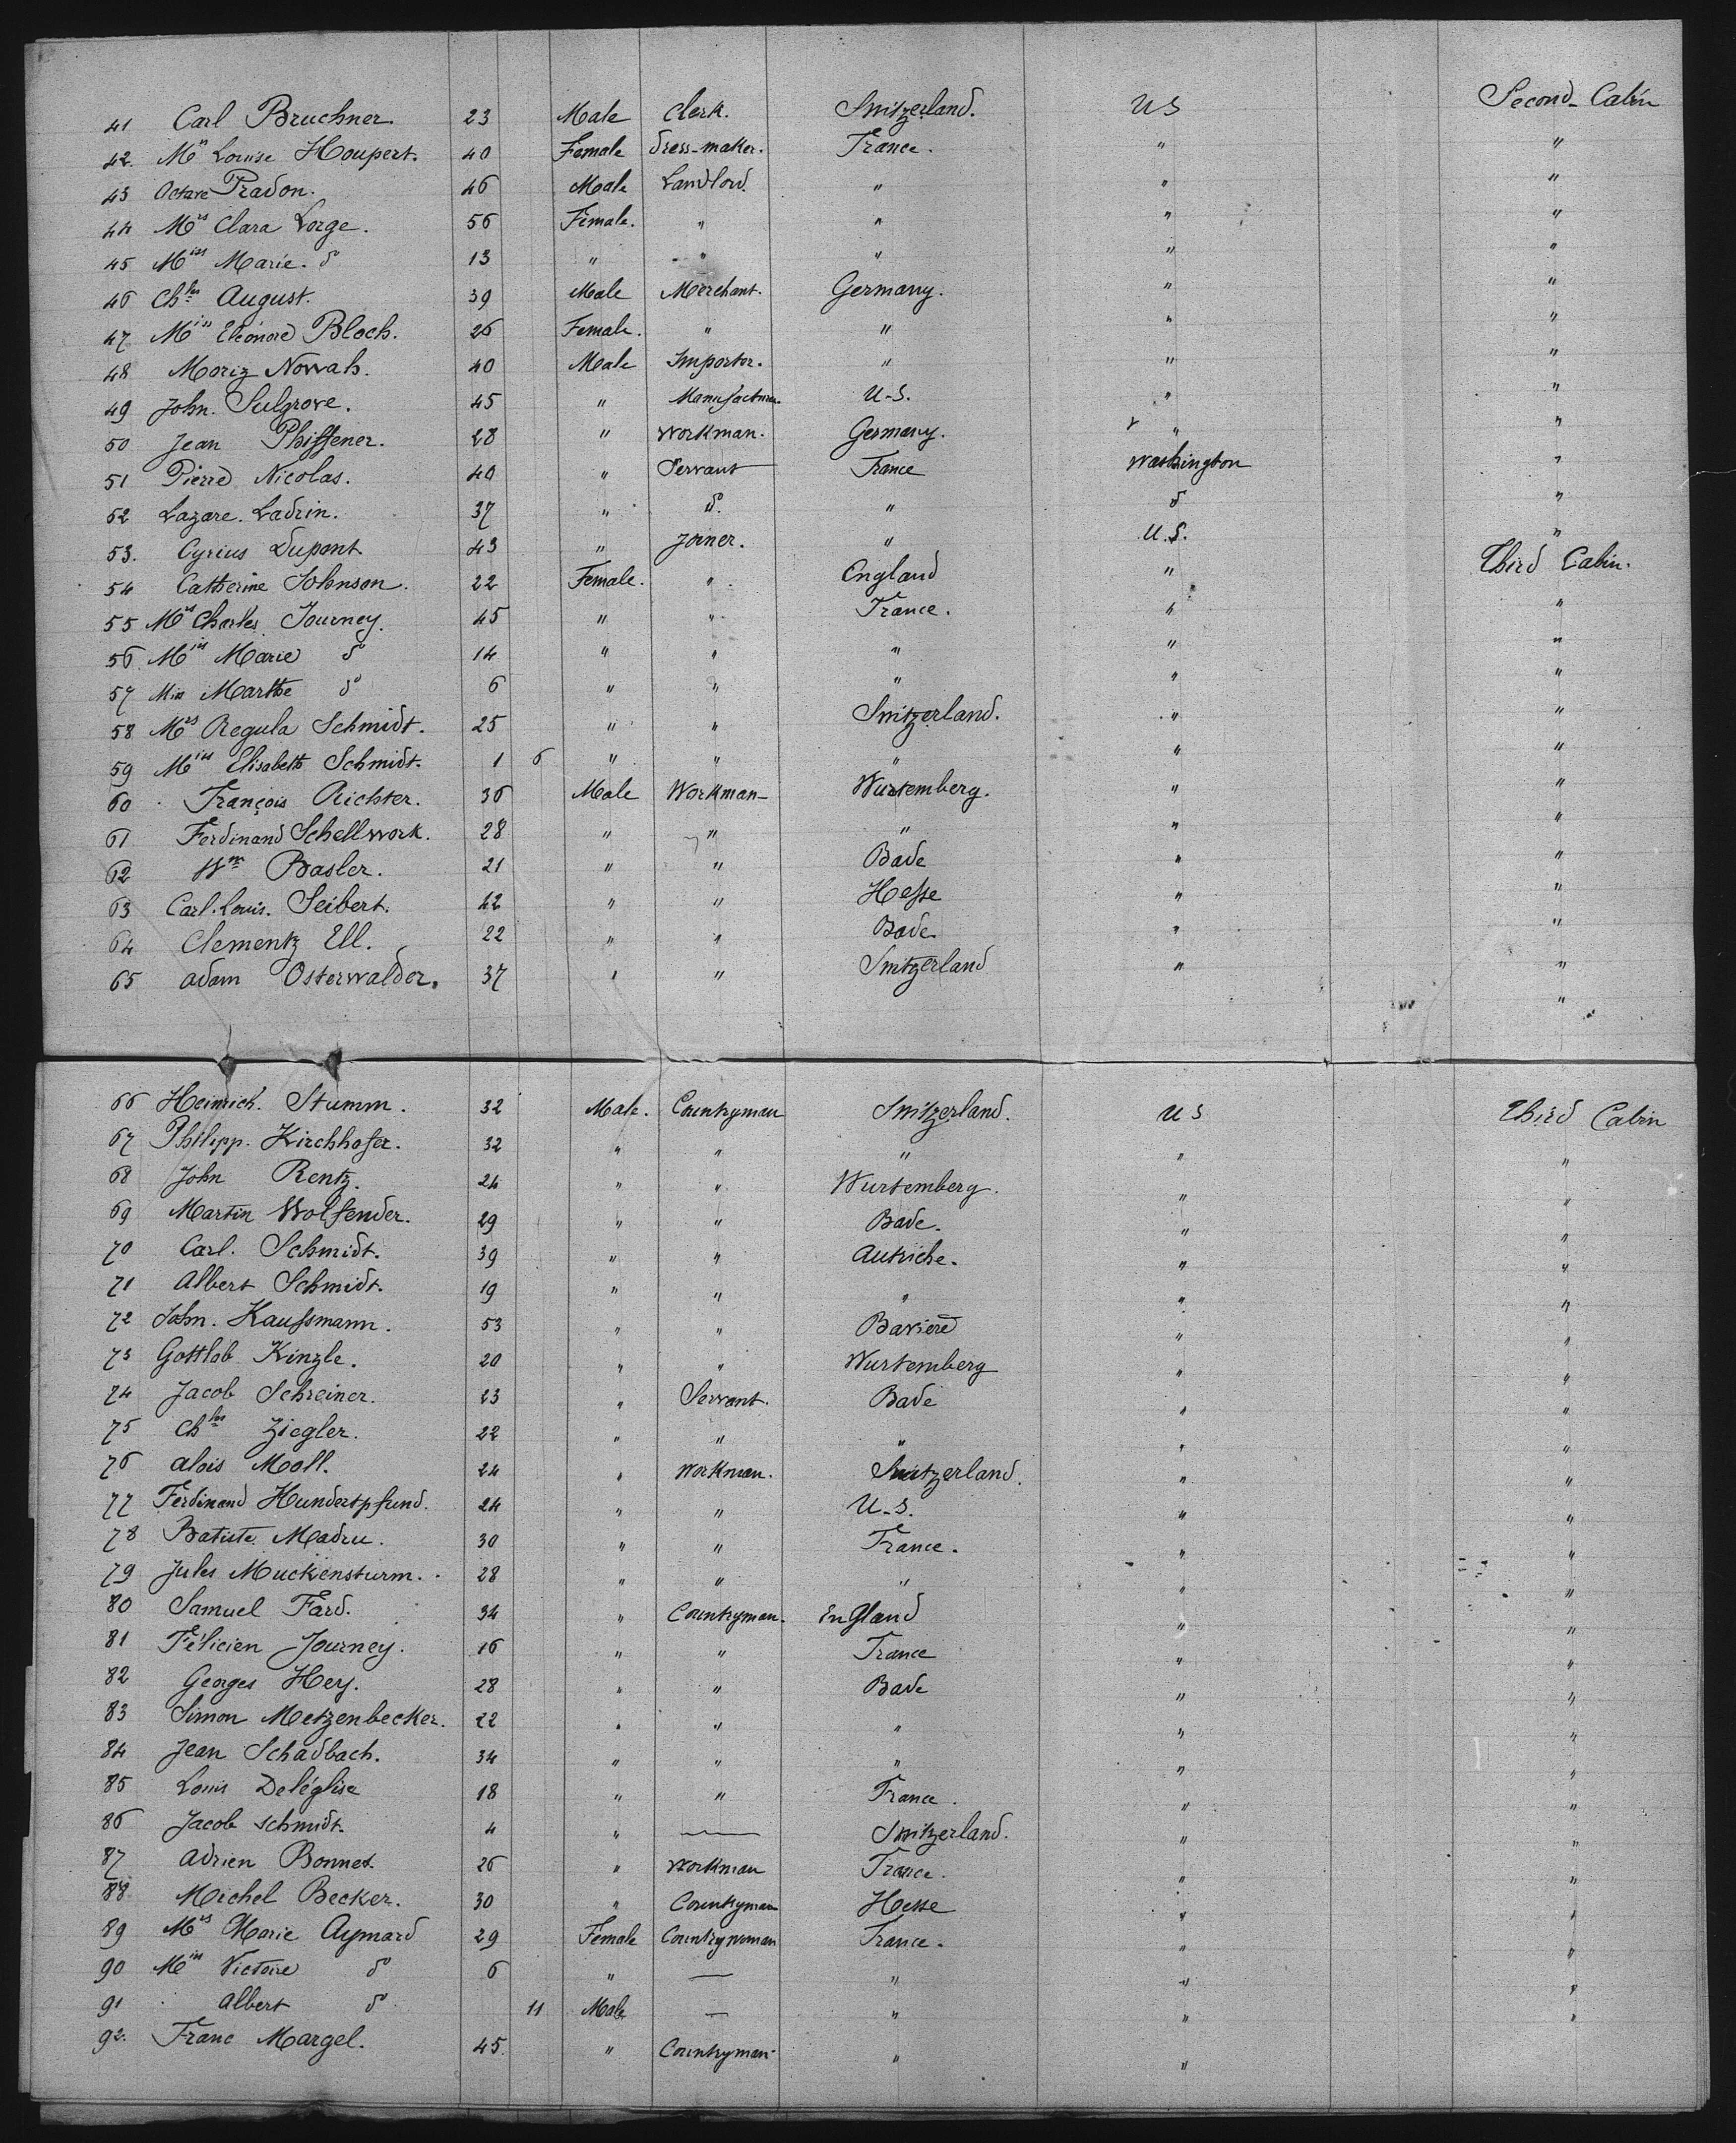 41 Carl Bruchner. 23 Male Clerk. Switzerland. US Second-Cabin
42. Mrs Louise Houpert. 40 Female dress-maker. France. " "
43 Octave Pradon. 46 Male Landlord. " " "
44 Mrs Clara Lorge. 56 Female. " " " "
45 Miss Marie. do 13 " " " " "
46 Chles August. 39 Male Merchant. Germany. " "
47 Miss Eléonore Bloch. 26 Female. " " " "
48 Moriz Nowah. 40 Male Importer. " " "
49 John. Sulgrove. 45 " Manufacturer. U-S. " "
50 Jean Phiffener. 28 " Workman. Germany. " "
51 Pierre Nicolas. 40 " Servant France Washington "
52 Lazare. Ladrin. 37 " do. " do "
53. Cyrius Dupont. 43 " Joiner. " U.S. "
54 Catherine Johnson. 22 Female. " England " Third Cabin.
55 Mrs Charles Journey. 45 " " France. " "
56 Miss Marie do 14 " " " " "
57 Miss Marthe do 6 " " " " "
58 Mrs Regula Schmidt. 25 " " Switzerland. " "
59 Miss Elisabeth Schmidt. 1 6 " " " " "
60 François Richter. 36 Male Workman- Wurtemberg. " "
61 Ferdinand Schellwork. 28 " " " " "
62 Wm Basler. 21 " " Bade " "
63 Carl. Louis. Seibert. 42 " " Hesse " "
64 Clementz Ell. 22 " " Bade " "
65 Adam Osterwalder. 37 " " Switzerland " "
"
66 Heinrich. Stumm. 32 Male. Countryman Switzerland. US Third Cabin
67 Philipp. Kirchhofer. 32 " " " " "
68 John Rentz. 24 " " Wurtemberg. " "
69 Martin Wolfender. 29 " " Bade. " "
70 Carl. Schmidt. 39 " " Autriche. " "
71 Albert Schmidt. 19 " " " " "
72 John. Kaufsmann. 53 " " Baviere " "
73 Gottlob Kinzle. 20 " " Wurtemberg " "
74 Jacob Schreiner. 23 " Servant. Bade " "
75 Chles Ziegler. 22 " " " " "
76 Alois Moll. 24 " Workman. Switzerland. " "
77 Ferdinand Hundertpfund. 24 " " U-S. " "
78 Batiste Madru. 30 " " France. " "
79 Jules Muckensturm. 28 " " " " "
80 Samuel Fard. 34 " Countryman. England " "
81 Félicien Journey. 16 " " France " "
82 Georges Hey. 28 " " Bade " "
83 Simon Metzenbecker. 22 " " " " "
84 Jean Schadbach. 34 " " " " "
85 Louis Deléglise 18 " " France. " "
86 Jacob schmidt. 4 " — Switzerland. " "
87 Adrien Bonnet. 26 " Workman France. " "
88 Michel Becker. 30 " Countryman Hesse " "
89 Mrs Marie Aymard 29 Female Countrywoman France. " "
90 Miss Victoire do 6 " — " " "
91 Albert do 11 Male — " " "
92. Franc Margel. 45. " Countryman " "